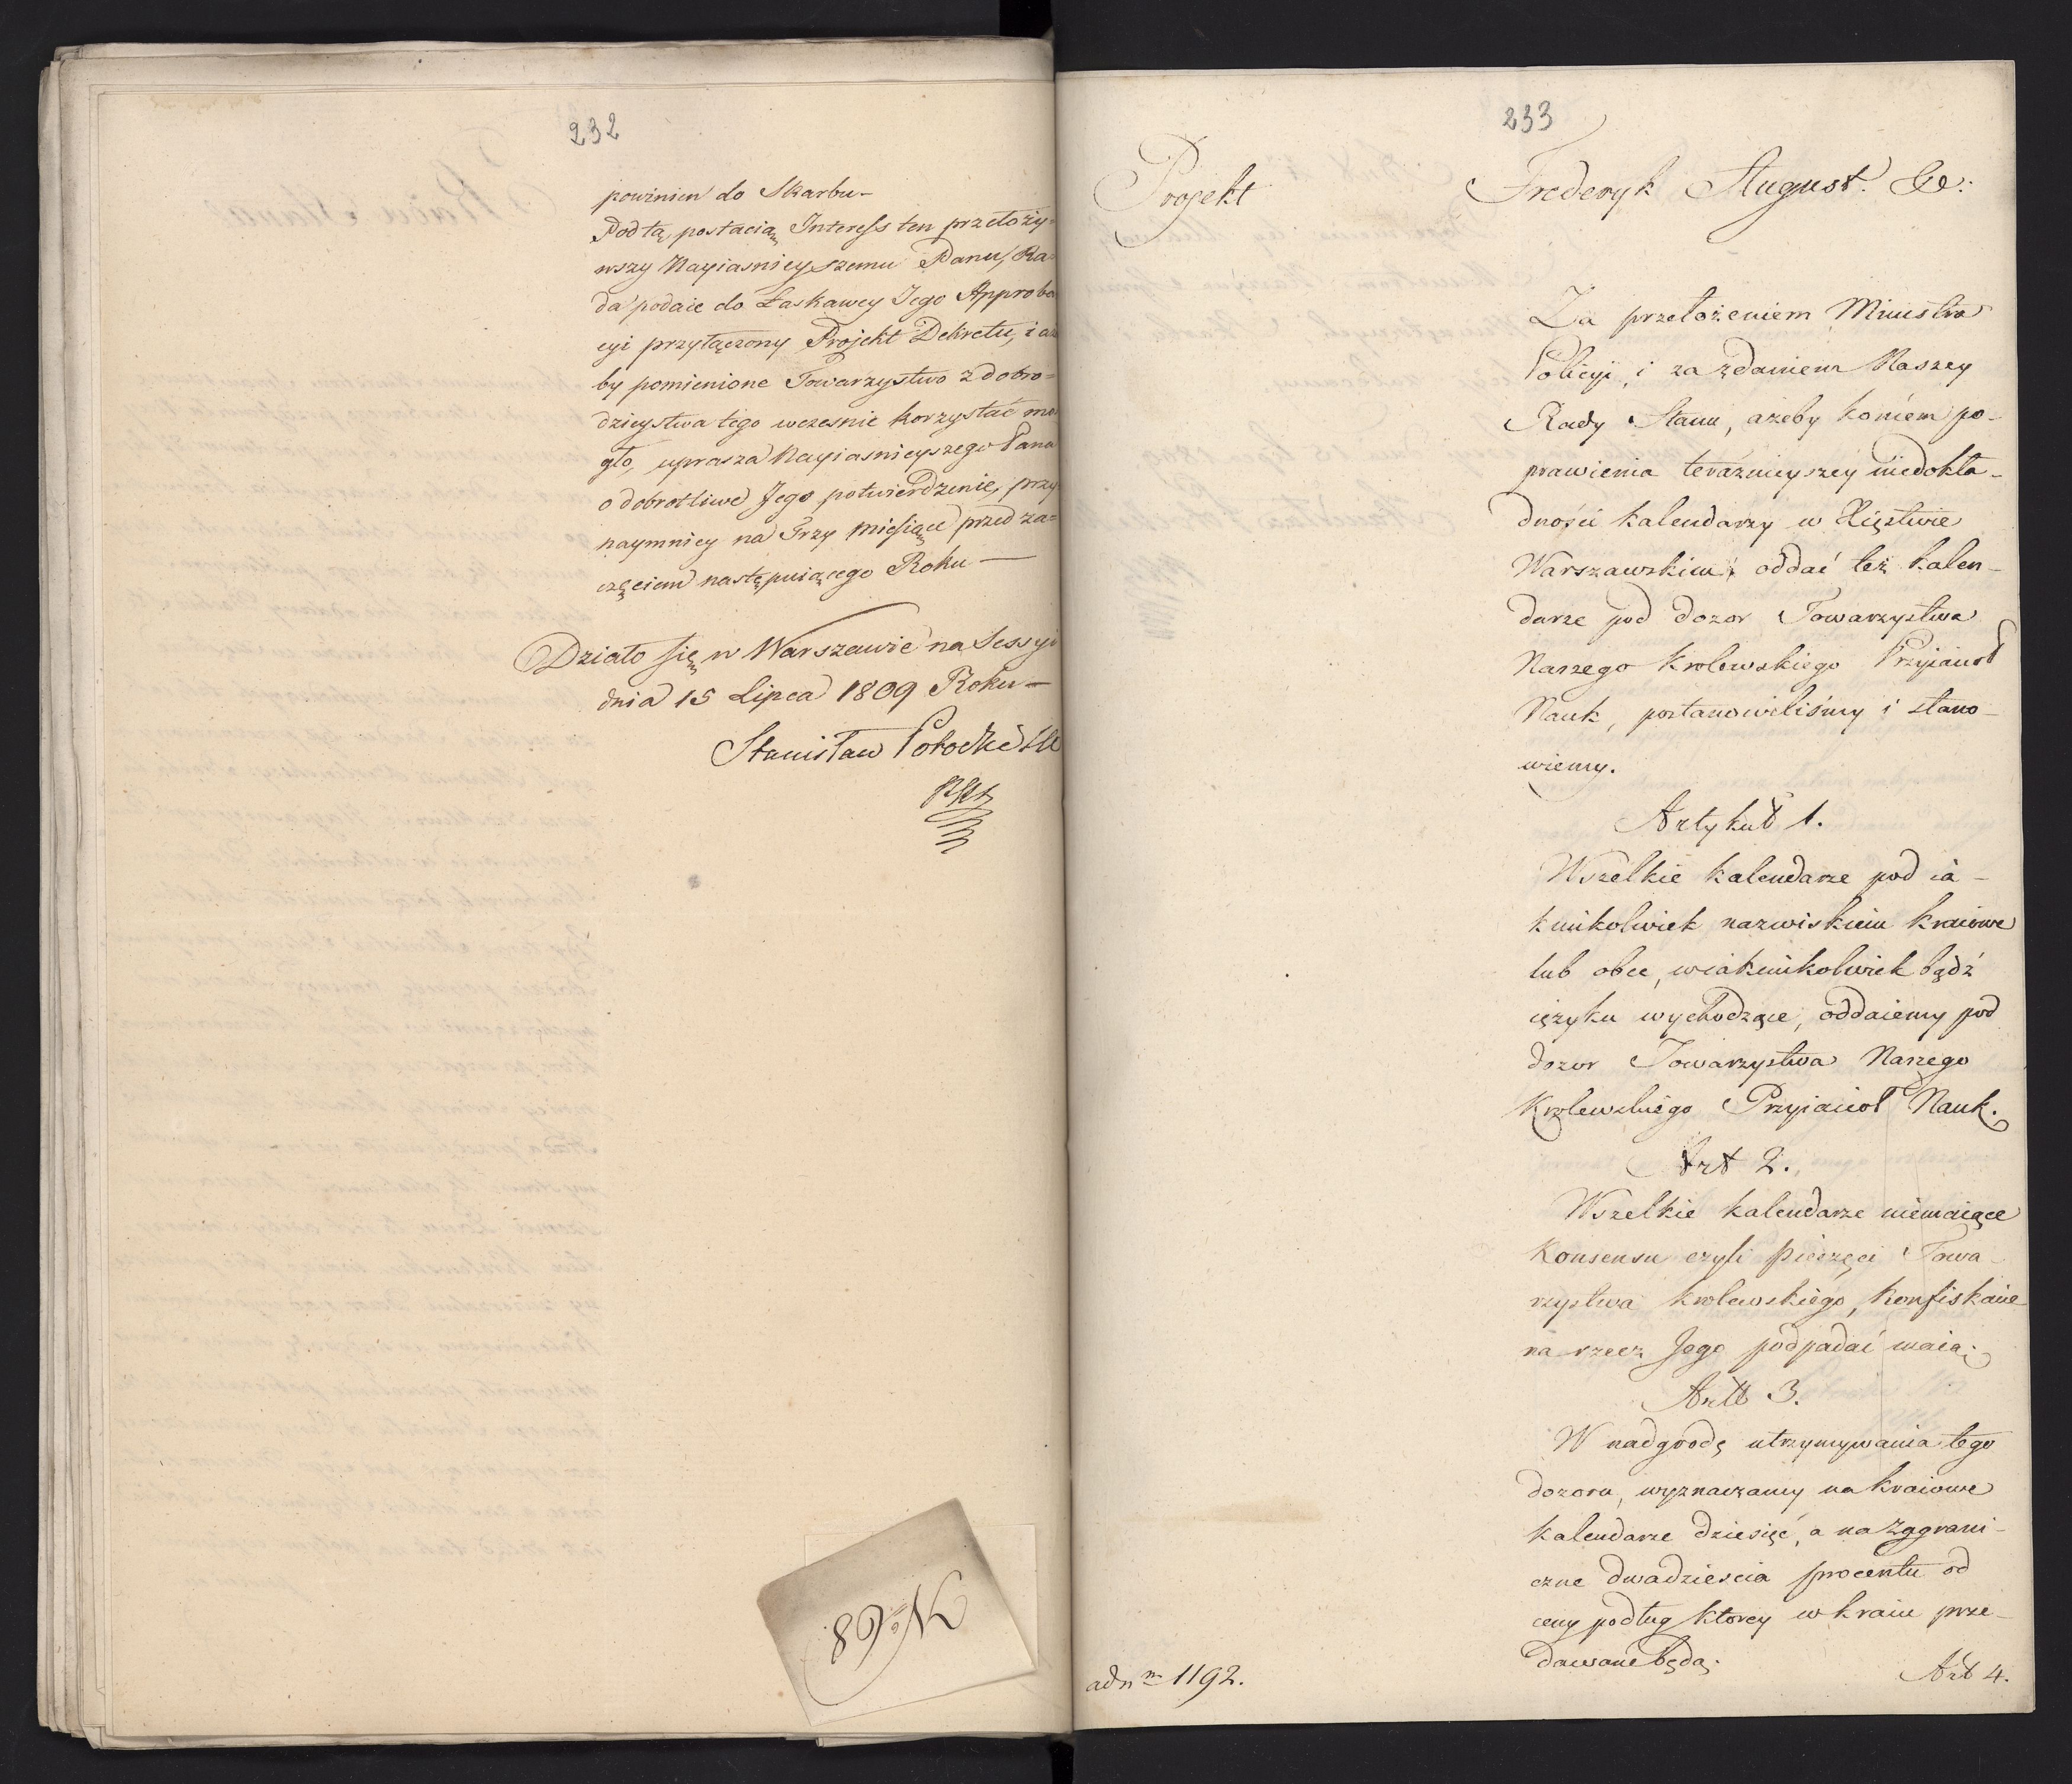 232
powinien do Skarbu –
Pod tą postacią Interess ten przełoży=
wszy Nayiasnieyszemu Panu, Ra=
da podaie do Łaskawey Jego Approba
cyi przyłączony Projekt Dekretu, i a
by pomienione Towarzystwo z dobro=
dzieystwa tego wczesnie korzystać mo
gło, uprasza Nayiasnieyszego Pana
o dobrotliwe Jego potwierdzenie, przy
naymniey na Trzy miesiące przed za=
częciem następuiącego Roku —
Działo się w Warszawie na Sessyi
dnia 15 Lipca 1809 Roku –
Stanisław Potocki
No 68
233
Projekt
Frederyk August. &c:
Za przełożeniem Ministra
Policyi, i za zdaniem Naszey
Rady Stanu, ażeby końcem po-
prawienia teraznieyszey niedokła-
dności kalendarzy w Xięstwie
Warszawskim oddać też kalen-
darze pod dozor Towarzystwa
Naszego Krolewskiego Przyiacioł
Nauk, postanowiliśmy i stano-
wiemy.
Artykuł 1.
Wszelkie kalendarze pod ia-
kimkolwiek nazwiskiem kraiowe
lub obce, wiakimkolwiek bądź
ięzyku wychodzące, oddaiemy pod
dozor Towarzystwa Naszego
Krolewskiego Przyiacioł Nauk.
Art 2.
Wszelkie kalendarze niemaiące
Konsensu czyli pieczęci Towa-
rzystwa Krolewskiego, Konfiskacie
na rzecz Jego podpadać maią.
Art 3.
W nadgrodę utrzymywania tego
dozoru, wyznaczamy na kraiowe
kalendarze dziesięć, a na zagrani-
czne dwadziescia procentu od
ceny podług ktorey w kraiu prze-
dawane będą.
ad nm 1192.
Art 4.